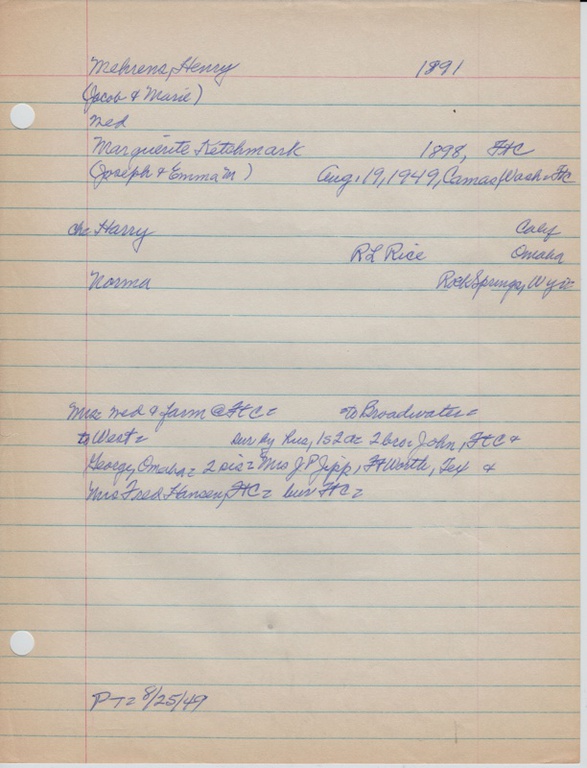 Mehrens, Henry 1891
(Jacob & Marie)
med
Marguerite Ketchmark 1898, FtC
(Joseph & Emma M) Aug. 19, 1949, Camas, Wash = FtC
ch: Harry Calif
RL Rice Omaha
Norma Rock Springs, Wyo
Mrs: med & farm @ FtC = to Broadwater =
to West = sur by hus, 1s 2d = 2 bro: John, FtC &
George, Omaha = 2 sis = Mrs J P Jipp, Ft Worth, Tex &
Mrs Fred Hansen, FtC = bur FtC =
PT = 8/25/49